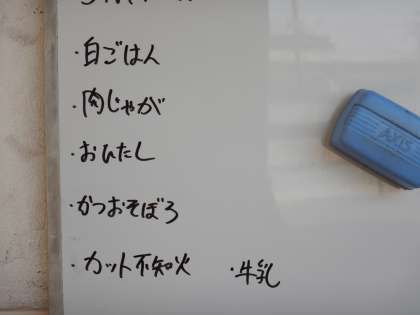 ・白ごはん
・肉じゃが
・おひたし
・かつおそぼろ
・カット不知火 ・牛乳
AXIS